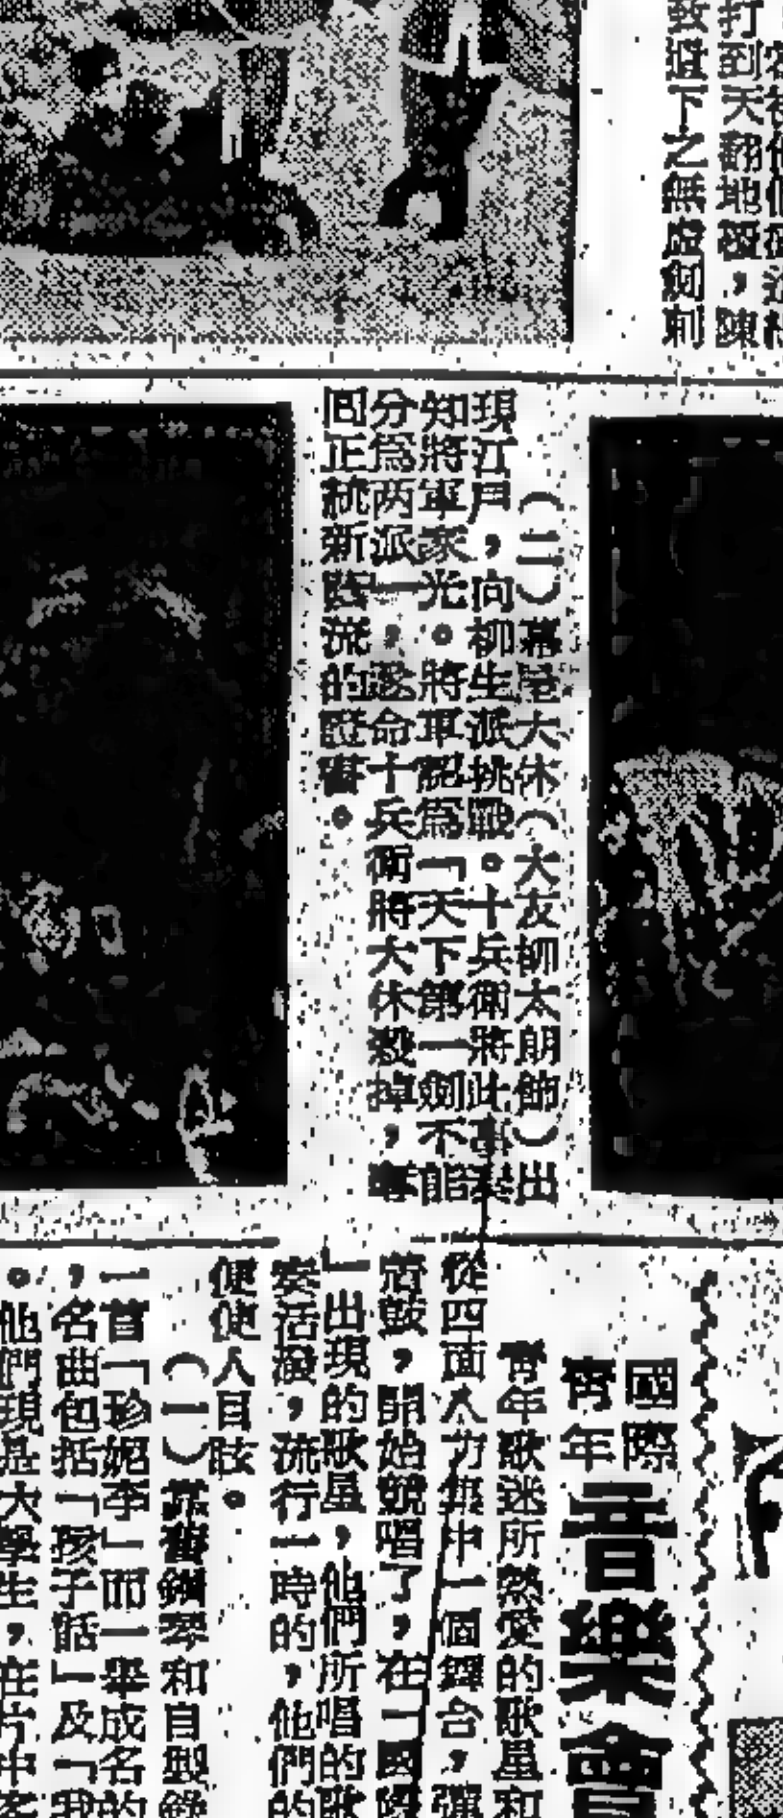 打到天翻地覆，陳
致遺下之無敵劍刺
（二）幕屋大休（大友柳太朗飾）出
現江戶，向柳生派挑戰。十兵衛將此事
知將軍家光。將軍認為「天下第一劍不能
分為两派」，遂命十兵衛將大休殺掉，奪
囘正統新陰流的證書。
國際
青年
音樂會
青年歌迷所熱愛的歌星和
從四面八方集中一個舞台，彈
着鼓，開始競唱了，在「國際
」出現的歌星，他們所唱的歌
奏活潑，流行一時的，他們的
便使人目眩。
（一）靠舊鋼琴和自製
一首「珍妮李」而一舉成名的
，名曲包括「孩子話」及「我
。他們現是大學生，在片中